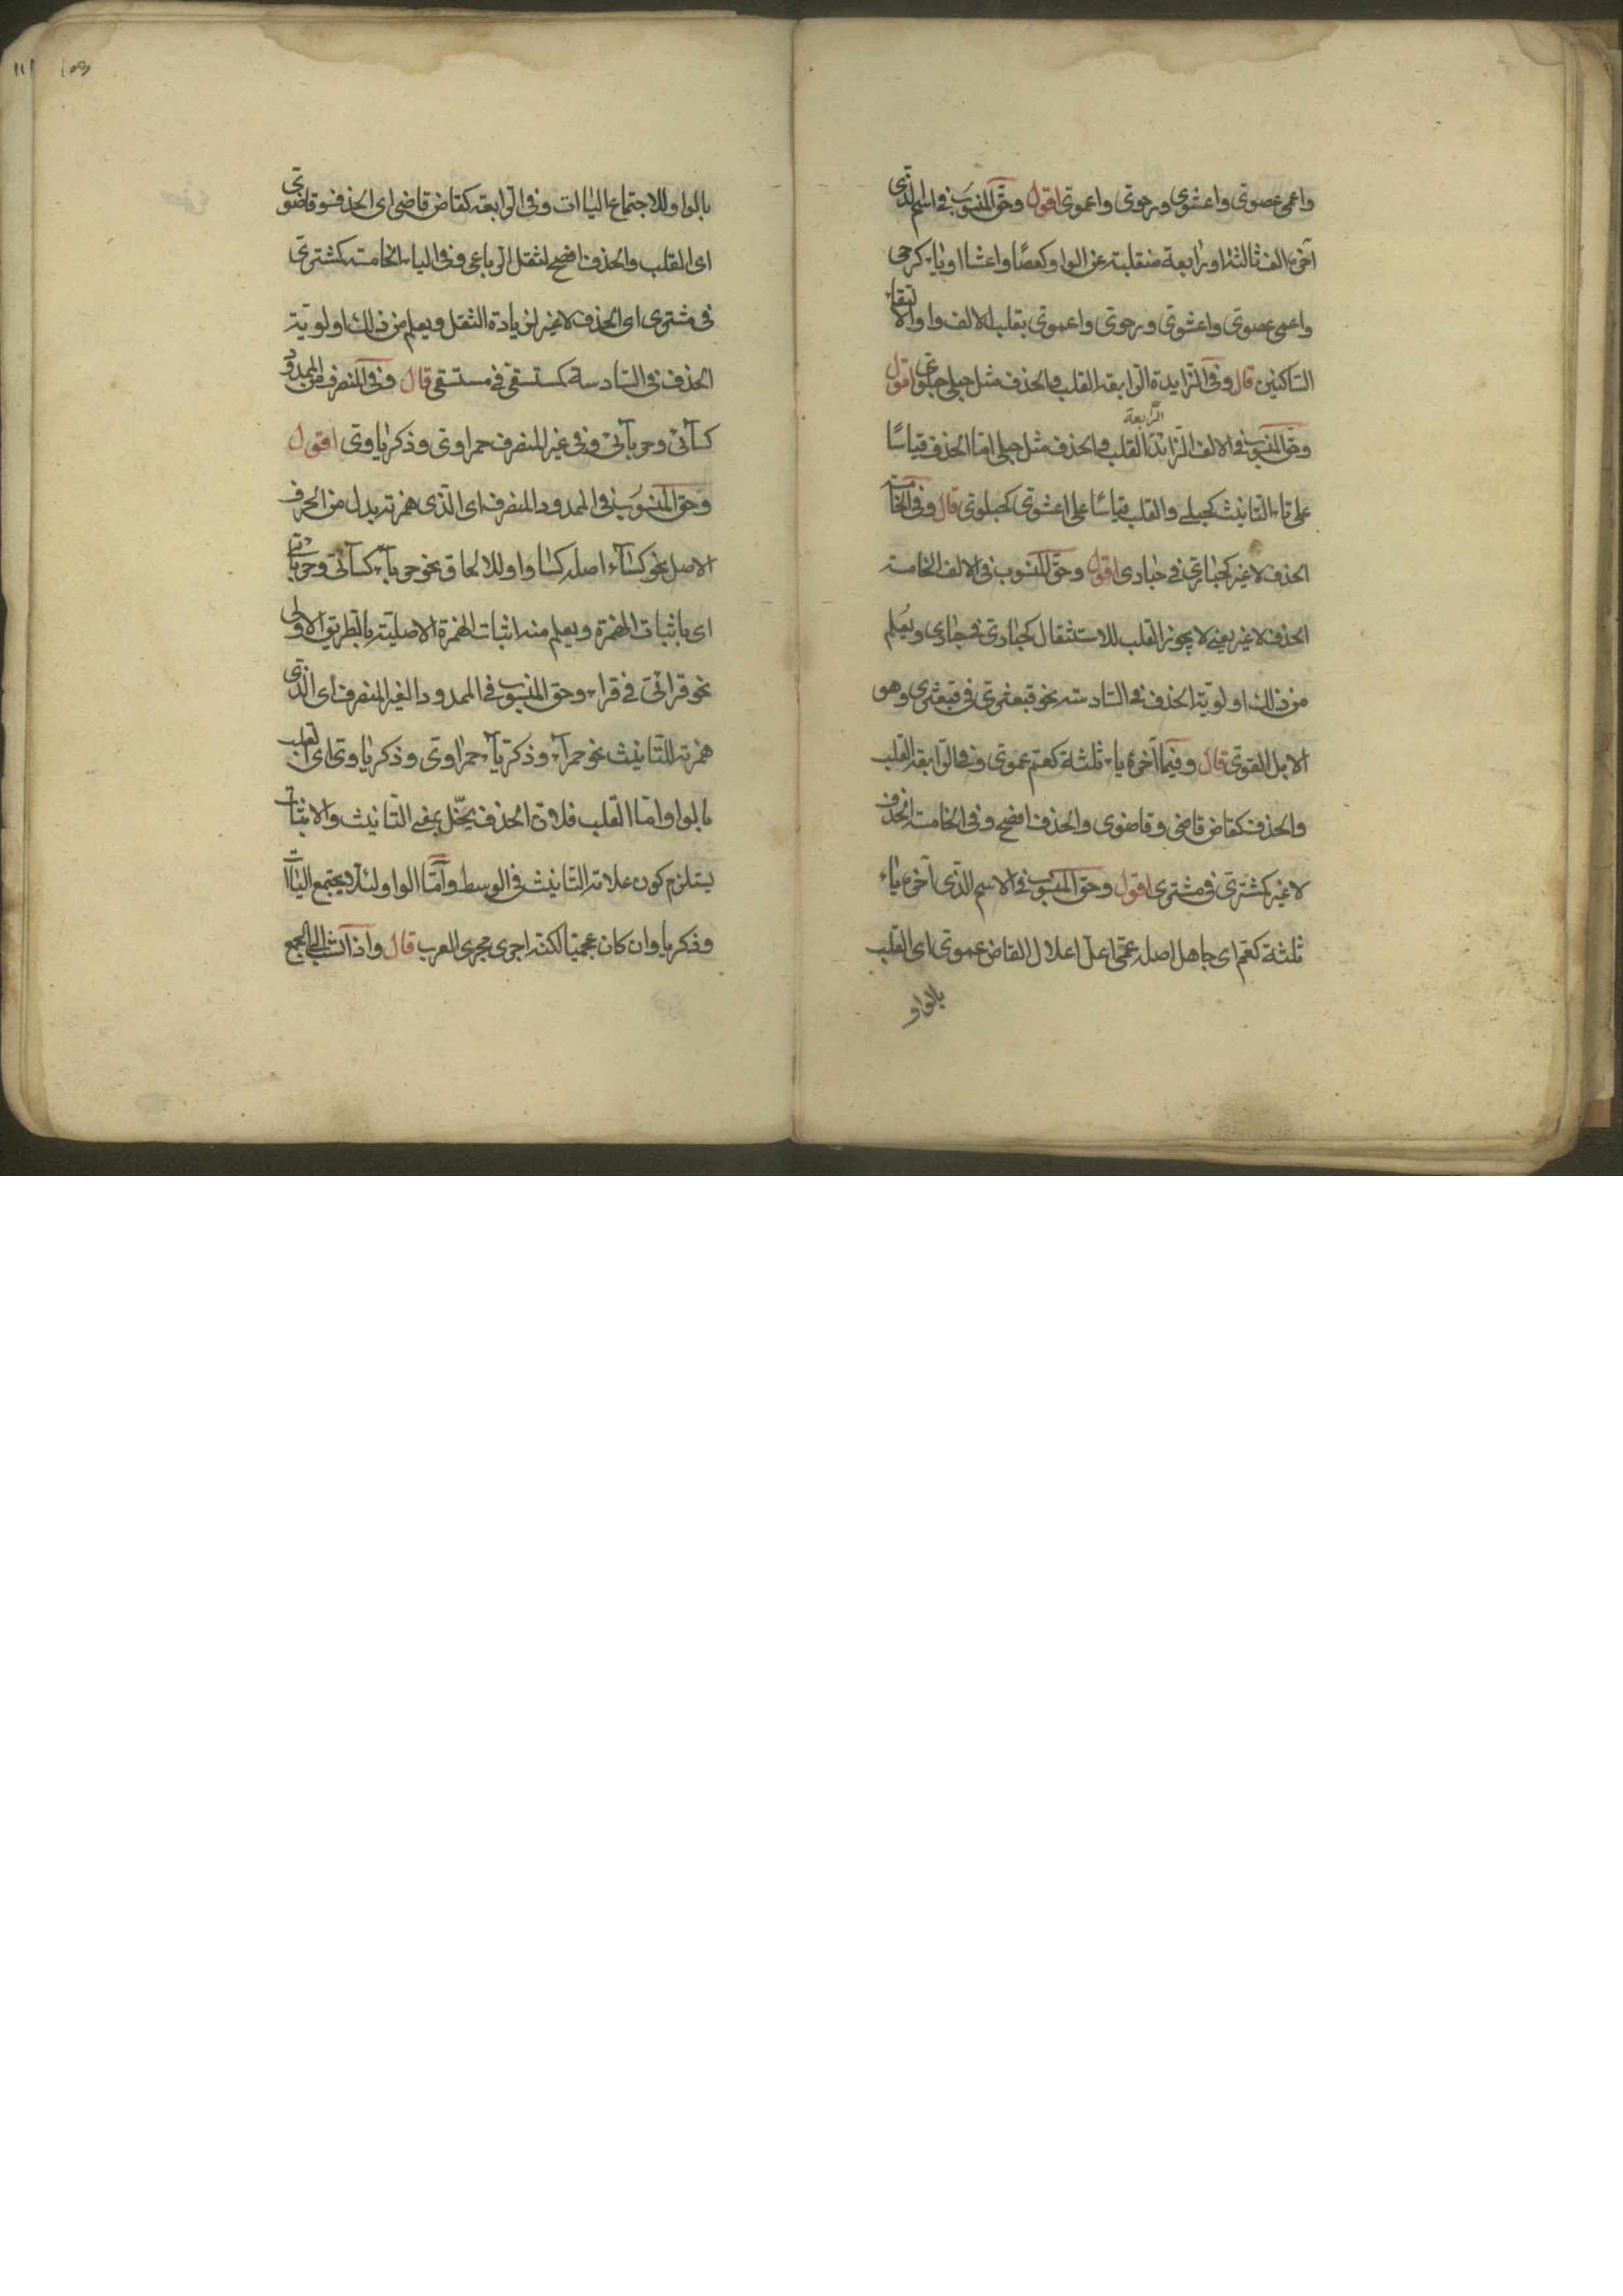 واعمى عصوىّ واعشوىّ ورحوىّ واعموىّ اقول وحقّ المنسوب فى اسم الّذى
آخره الف ثالثة او رابعة منقلبة عن الواو كعصًا واعشا او ياء كرحى
واعمى عصوىّ واعشوىّ ورحوىّ واعموىّ بقلب الالف واوا لالتقاء
السّاكنين قال وفى الزّايدة الرّابعة القلب والحذف مثل حبلى حبلوىّ اقول
وحقّ المنسوب فى الالف الزّائدة الرّابعة القلب والحذف مثل حبلى امّا الحذف قياسًا
على تاء التّانيث كحبلى والقلب قياسًا على اعشوىّ كحبلوىّ قال وفى الخامسة
الحذف لا غير كحبارىّ فى حبارى اقول وحقّ المنسوب فى الالف الخامسة
الحذف لا غير يعنى لا يجوز القلب للاستثقال كحبارىّ فى حبارى ويُعلم
من ذلك اولويّة الحذف فى السّادسة نحو قبعثرىّ فى قبعثرى وهو
الابل القوىّ قال وفيما آخره ياء ثلثة كعم عموىّ وفى الرّابعة القلب
والحذف كقاض قاضى وقاضوى والحذف افصح وفى الخامسة الحذف
لا غير كمشترىّ فى مشترى اقول وحقّ المنسوب فى الاسم الّذى آخره ياء
ثلثة كعم اى جاهل اصله عمى اعلّ اعلال القاض عموىّ اى القلب
بالواو
١١١
بالواو للاجتماع الياات وفى الرّابعة كقاض قاضى اى الحذف وقاضوىّ
اى القلب والحذف افصح لثقل الرباعى وفى الياء الخامسة كمشترىّ
فى مشترى اى الحذف لا غير لزيادة الثقل ويعلم من ذلك اولويّة
الحذف فى السّادسة كمستسقىّ فى مستسقى قال وفى المنصرف من الممدود
كسآئىّ وحربآئىّ وفى غير المنصرف حمراوىّ وذكرياوىّ اقول
وحق المنسوب فى الممدود المنصرف اى الّذى همزته بدل من الحرف
الاصل نحو كسآء اصله كساو او للالحاق نحو حربآء كسآئىّ وحربائىّ
اى باثبات الهمزة ويعلم منه اثبات الهمزة الاصليّة بالطريق الاولى
نحو قرائىّ فى قراء وحق المنسوب فى الممدود الغير المنصرف اى الّذى
همزته للتّانيث نحو حمرآء وذكريآء حمراوىّ وذكرياوىّ اى القلب
بالواو وامّا القلب فلانّ الحذف يخلّ بمعنى التّانيث والاثبات
يستلزم كون علامة التّانيث فى الوسط وامّا الواو لئلّا يجتمع الياات
وذكريا وان كان عجميّا لكنّه اجرى مجرى العرب قال واذا نسب الى الجمع